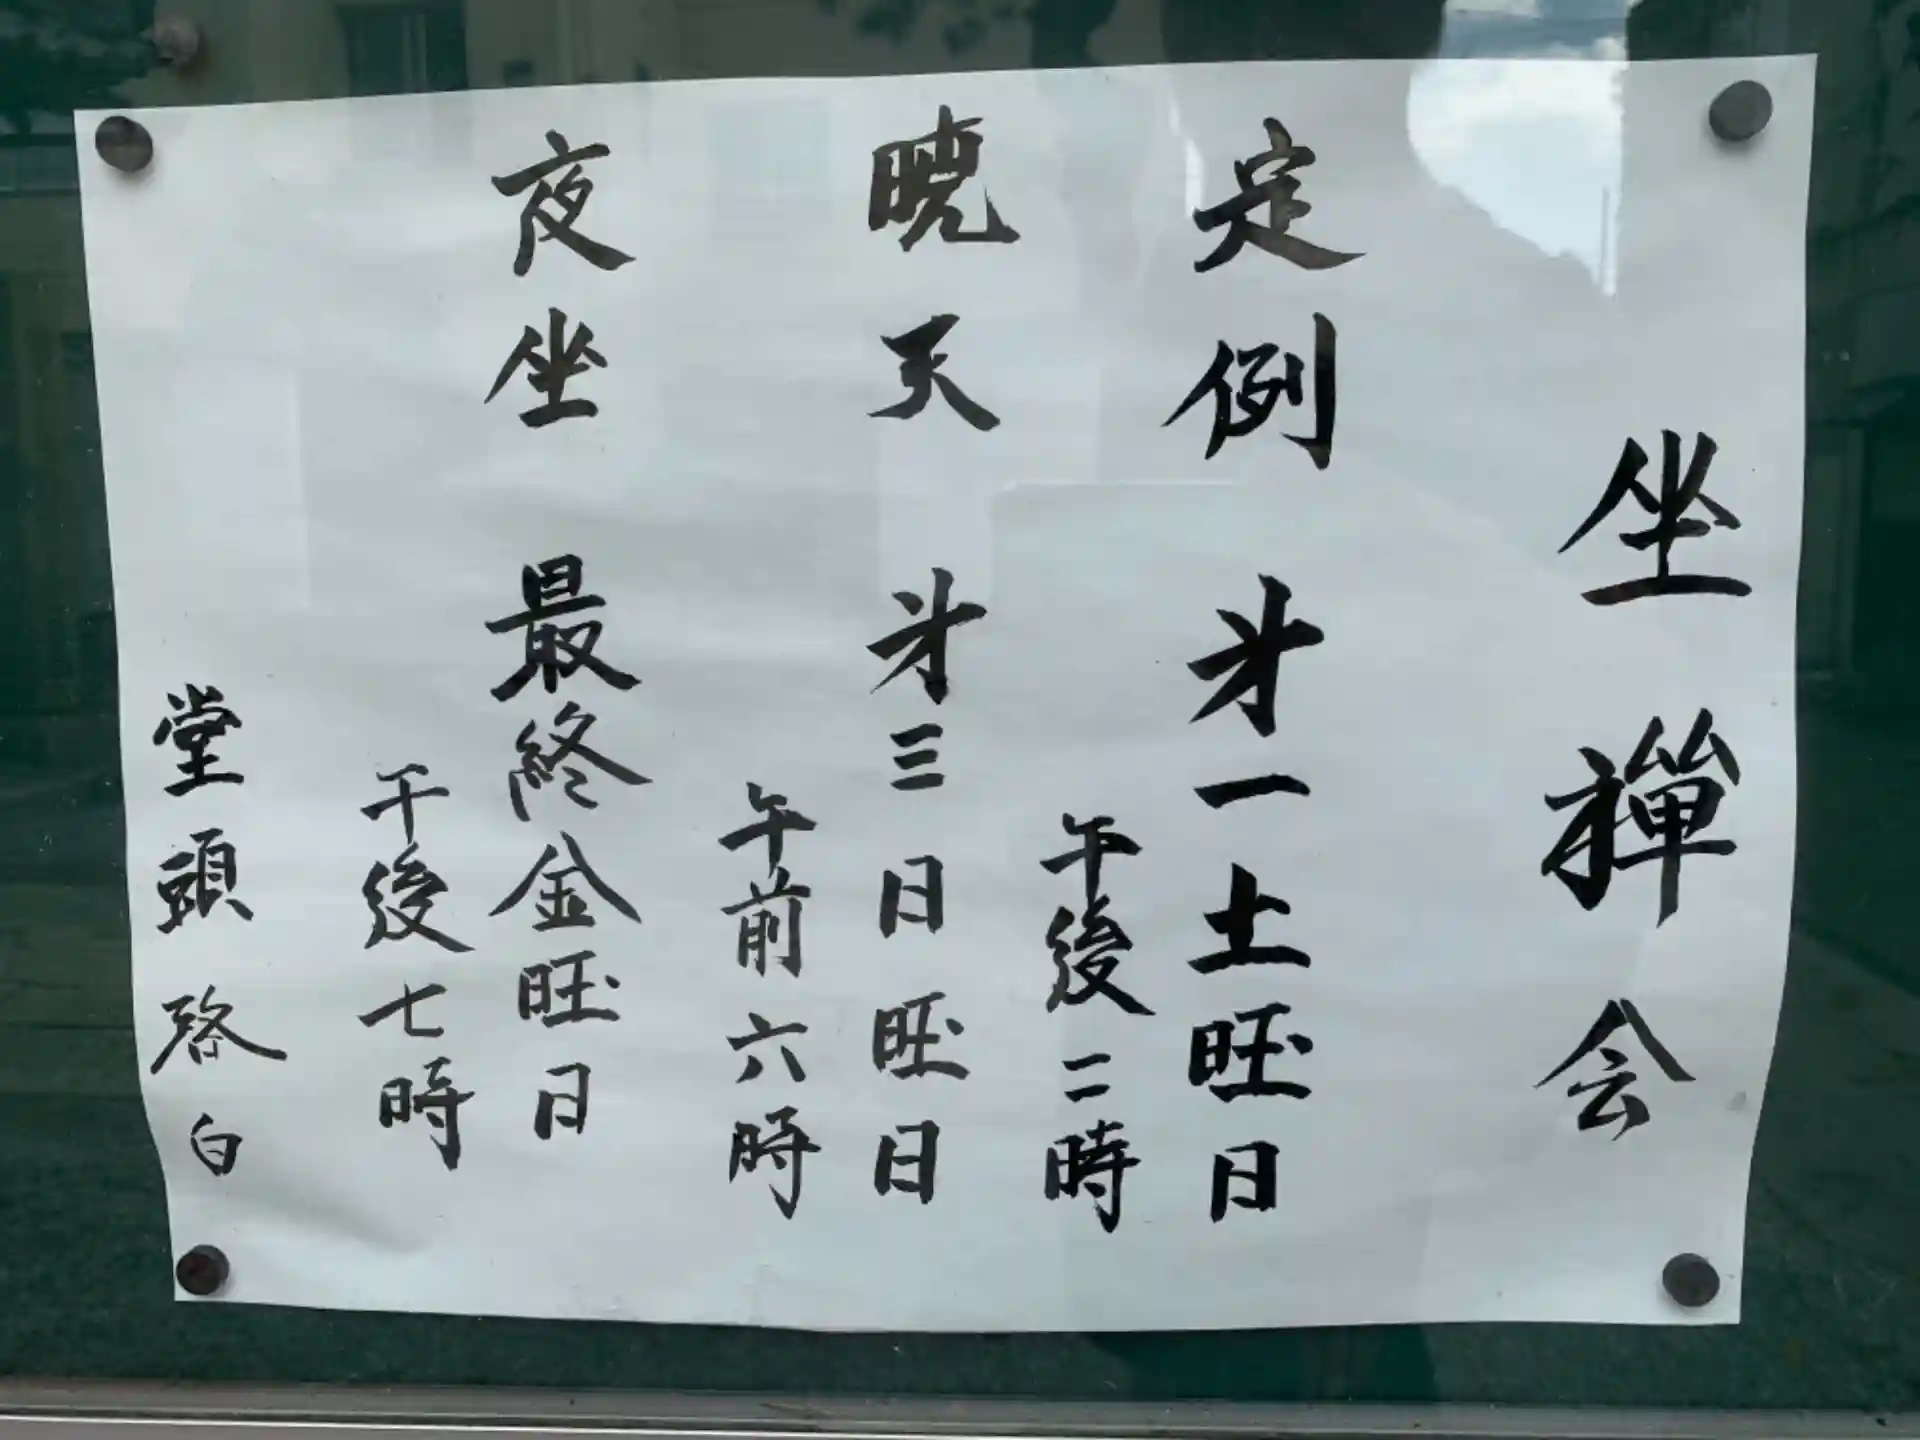 坐禅会
定例 才一土旺日
午後二時
暁天 才三日旺日
午前六時
夜坐 最終金旺日
午後七時
堂頭 啓白